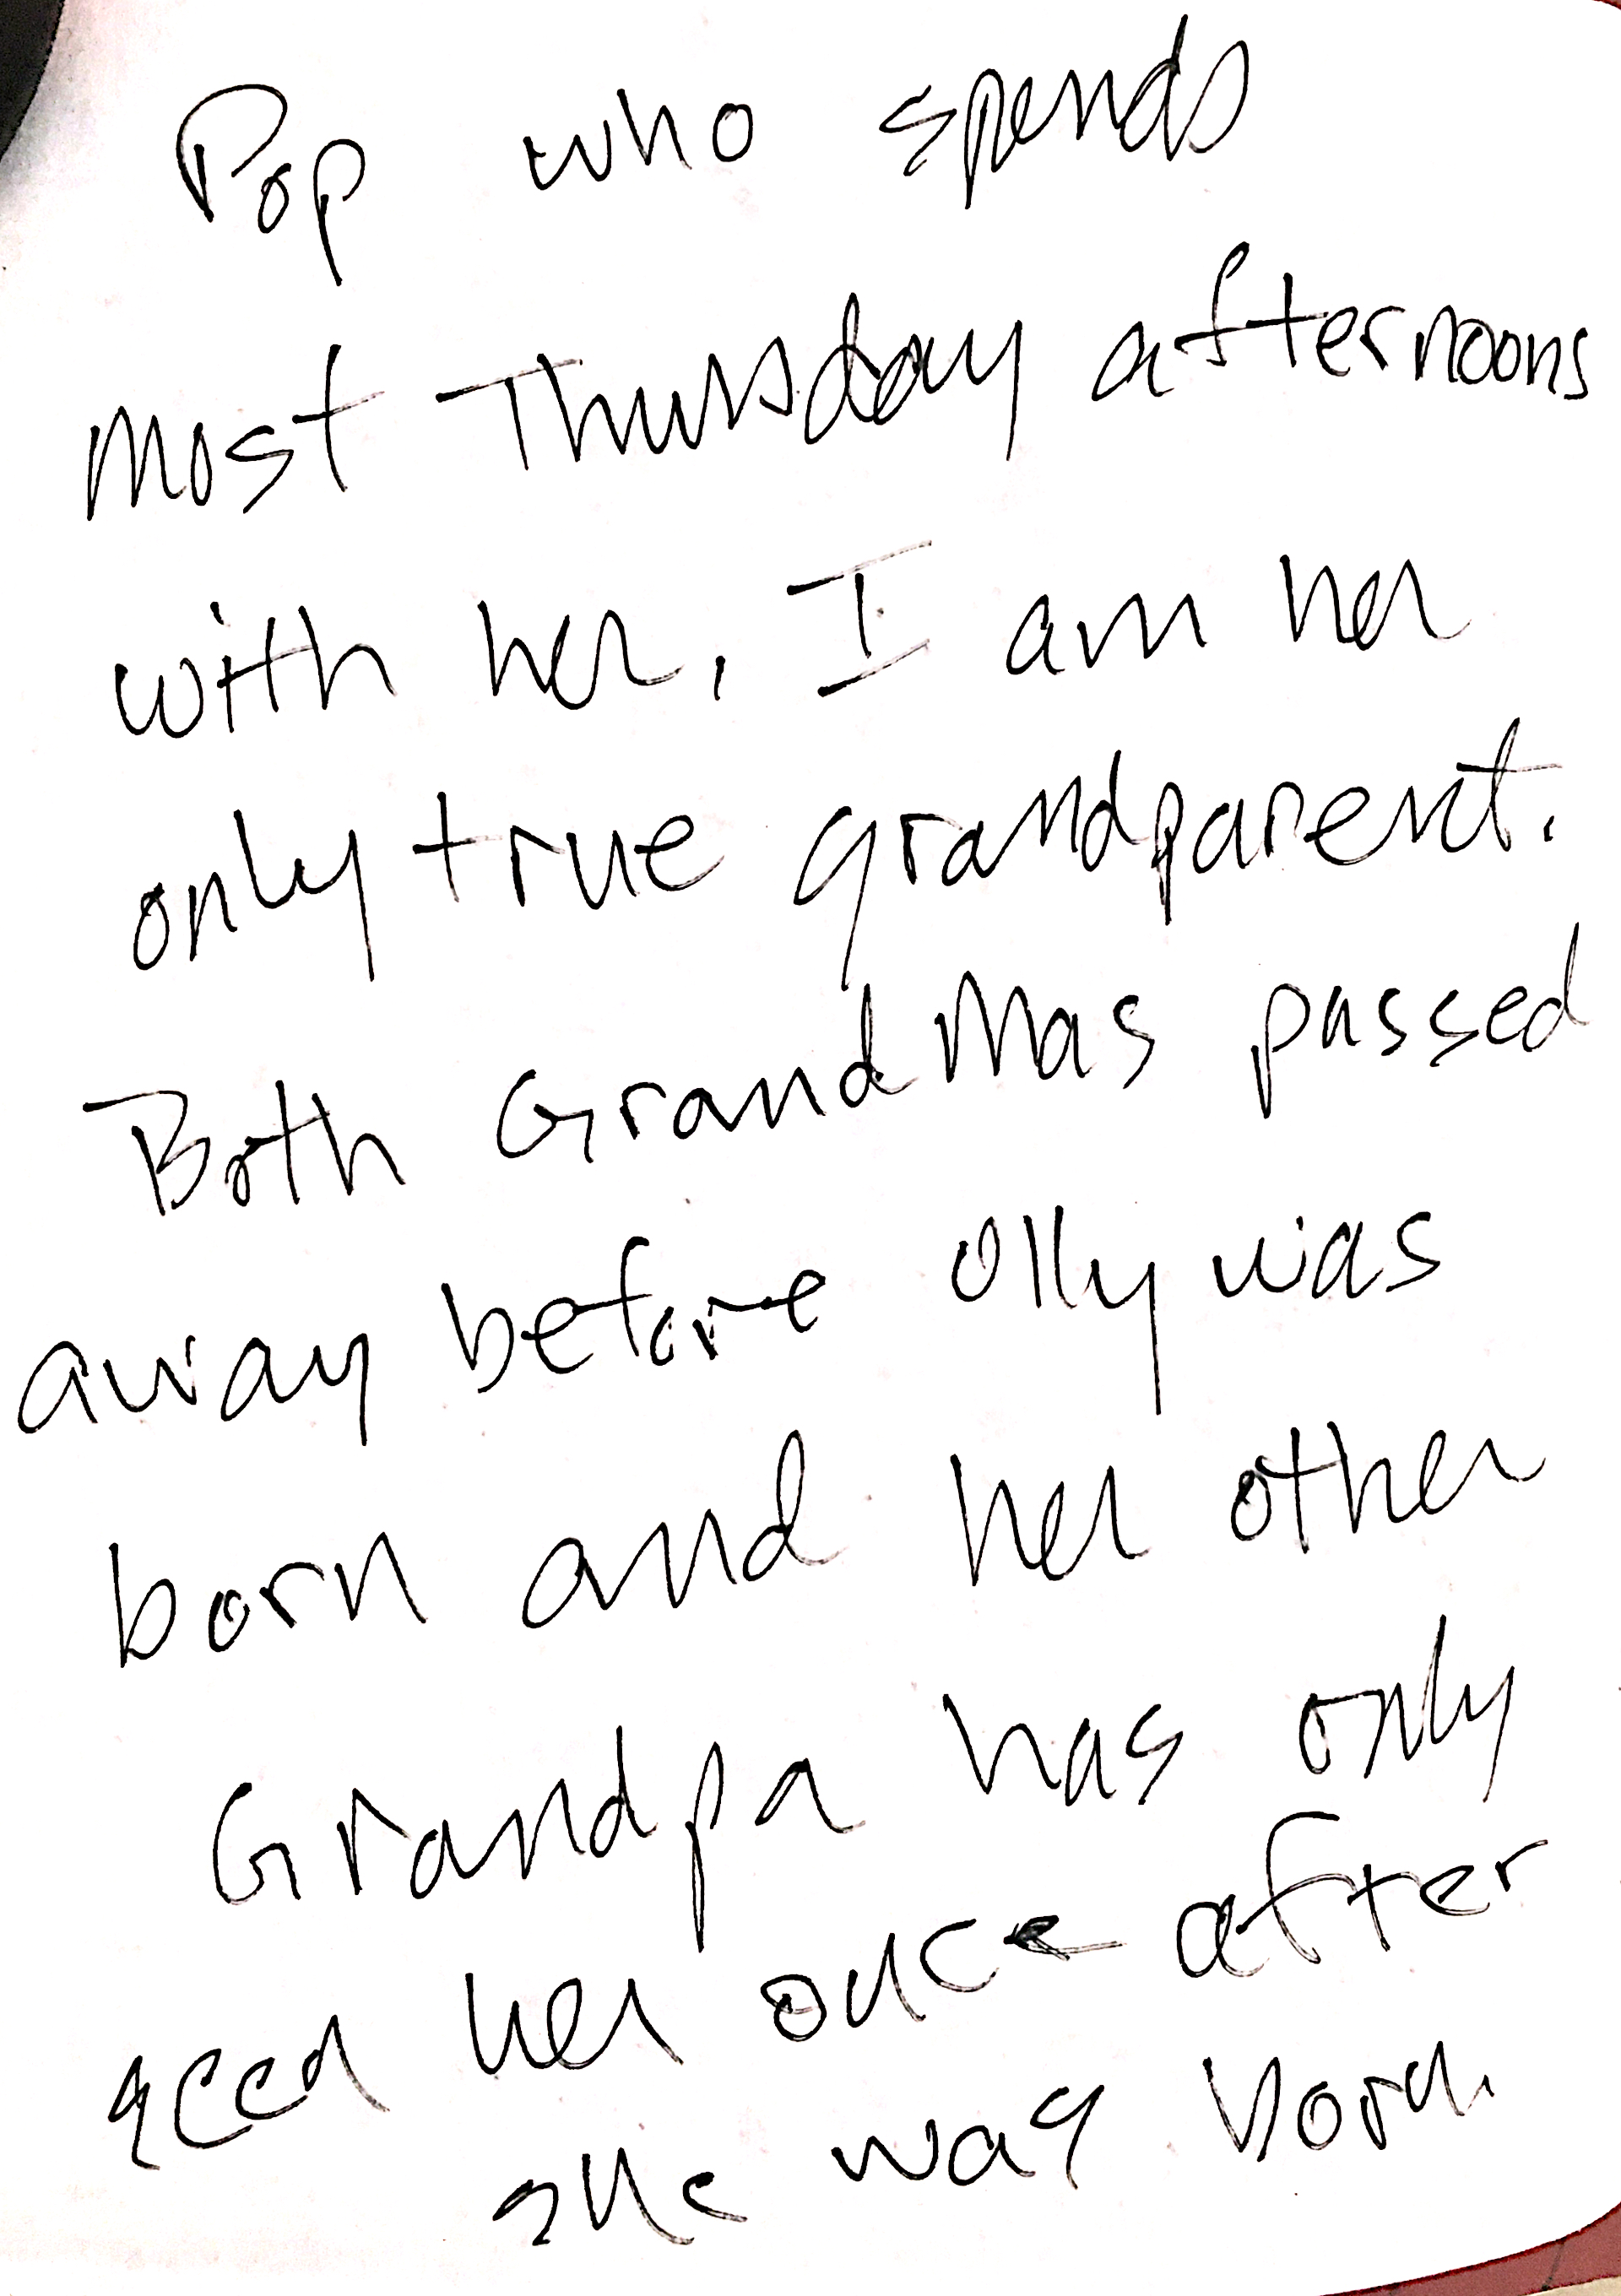 Pop who spends
most Thursday afternoons
with her. I am her
only true grandparent.
Both GrandMas passed
away before Olly was
born and her other
Grandpa has only
seen her once after
she was born.